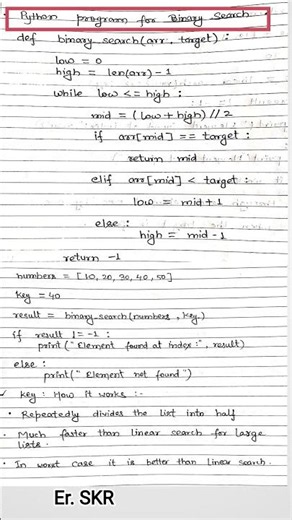 • Python program for Binary Search
def binary_search(arr, target) :
low = 0
high = len(arr) - 1
while low <= high :
mid = (low + high) // 2
if arr[mid] == target :
return mid
elif arr[mid] < target :
low = mid + 1
else :
high = mid - 1
return -1
numbers = [10, 20, 30, 40, 50]
key = 40
result = binary_search(numbers, key)
if result != -1 :
print("Element found at index :", result)
else :
print("Element not found")
✓ key : How it works :-
• Repeatedly divides the list into half
• Much faster than linear search for large
lists.
• In worst case it is better than linear search.
Er. SKR